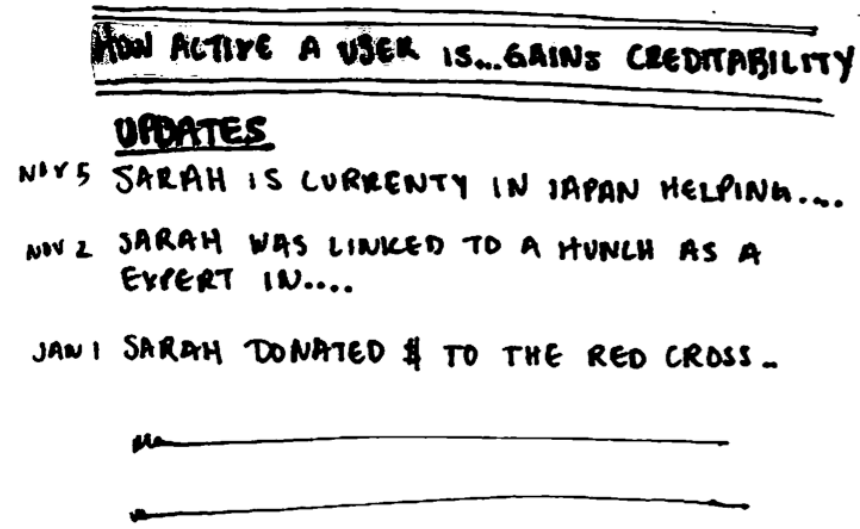 HOW ACTIVE A USER IS...GAINS CREDITABILITY
UPDATES
NOV 5 SARAH IS CURRENTY IN JAPAN HELPING....
NOV 2 SARAH WAS LINKED TO A HUNCH AS A
EXPERT IN....
JAN 1 SARAH DONATED $ TO THE RED CROSS..